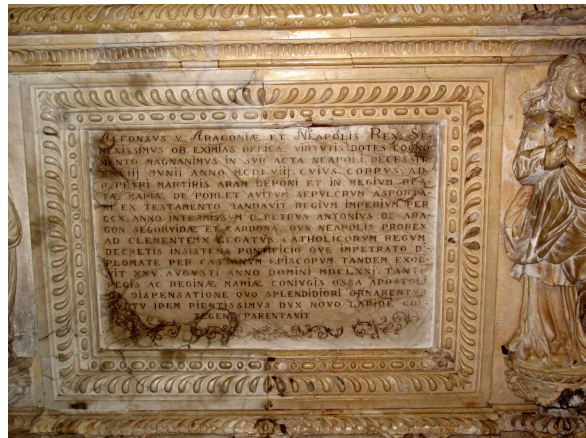 ALFONSVS V ARAGONIÆ ET NEAPOLIS REX SE
RENISSIMVS OB EXIMIAS BELICÆ VIRTVTIS DOTES COGNO
MENTO MAGNANIMVS IN SVP ACTA NEAPOLI DECESSIT
IVNII ANNO MCDLVIII CVIVS CORPVS AD
PETRI MARTIRIS ARAM DEPONI ET IN REGIVM
MARIÆ DE POBLET AVITVM SEPVLCRVM ASPORTA
EX TESTAMENTO MANDAVIT REGIVM IMPERIVM PER
CCX ANNO INTERMISSVM D. PETRVS ANTONIVS DE ARA
GON SEGORVIDÆ ET CARDONA DVX NEAPOLIS PROREX
AD CLEMENTEM X LEGATVS CATHOLICORVM REGVM
DECRETIS INSISTENS PONTIFICIO QVE IMPETRATO DI
PLOMATE PER CASSANVM EPISCOPVM TANDEM EXOL
VIT XXV AVGVSTI ANNO DOMINI MDCLXXI TANTI
REGIS AC REGINÆ MARIÆ CONIVGIS OSSA APOSTOLI
DISPENSATIONE QVO SPLENDIDIORI ORNARENTVR
IDEM PIENTISSIMVS DVX NOVO LAPIDE
TEGENS PARENTAVIT